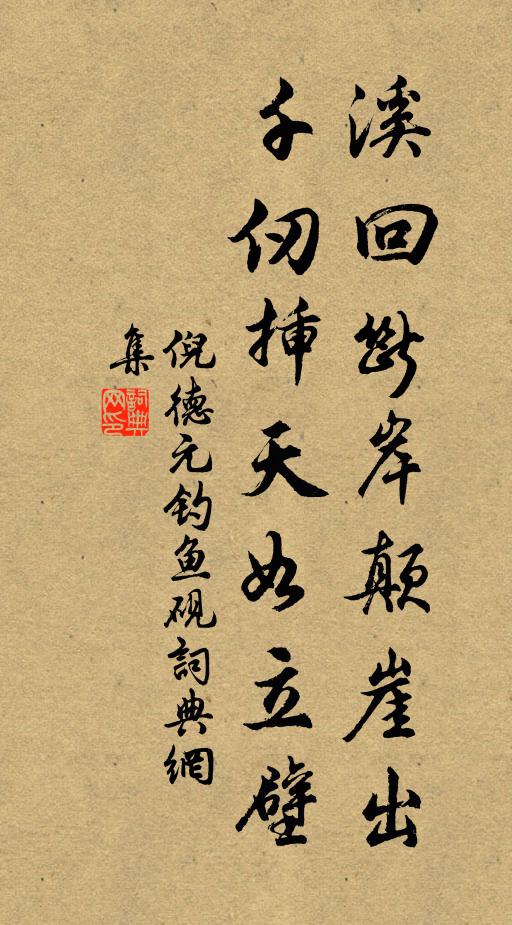 溪回断岸颠崖出
千仞插天如立壁
倪德元钓鱼砚詞典網
集
詞典网印